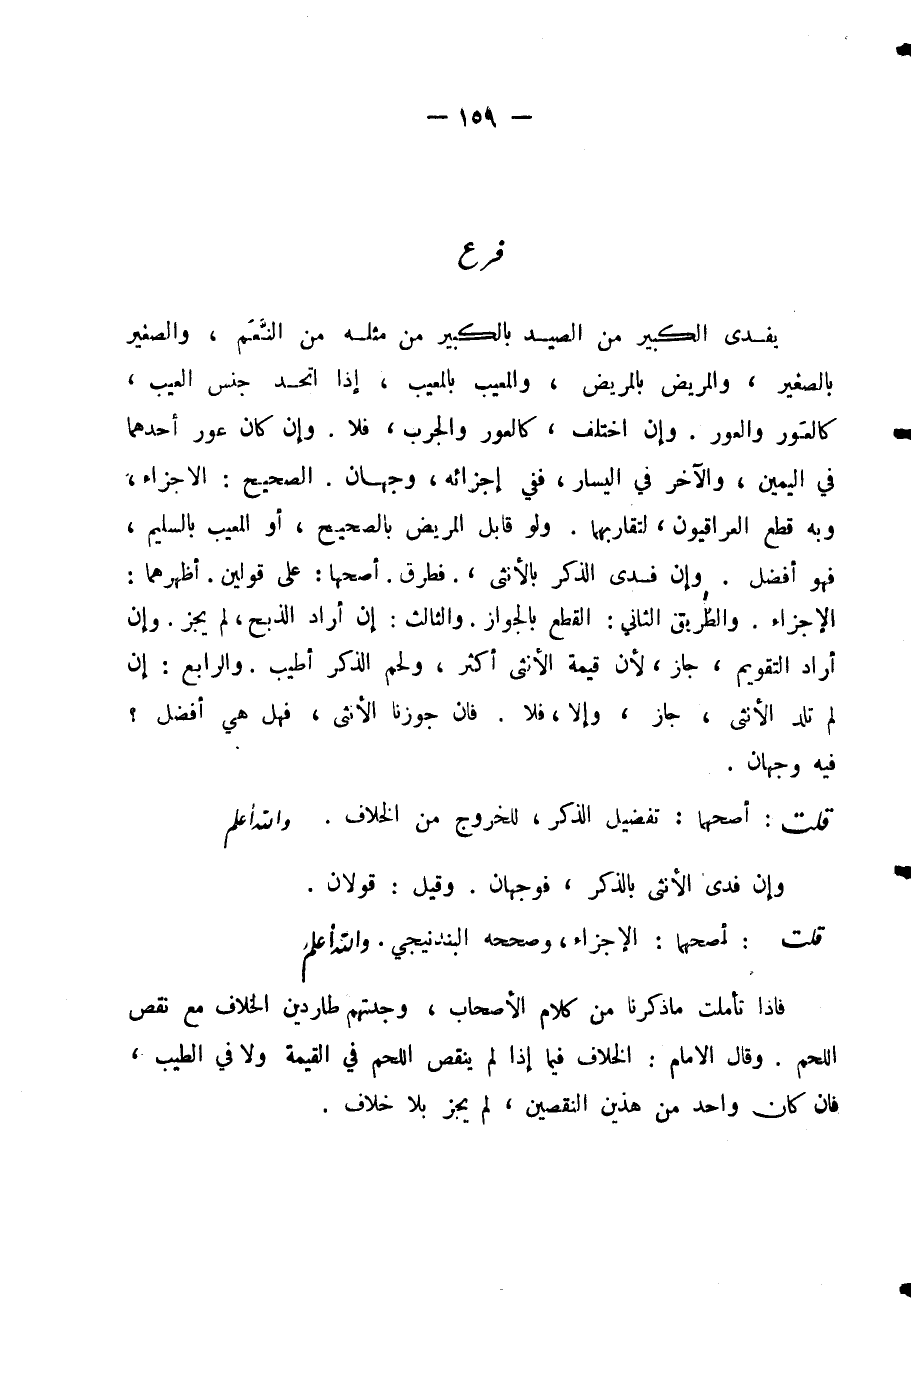 — ١٥٩ —
فرع
يفدى الكبير من الصيد بالكبير من مثله من النَّعَم ، والصغير
بالصغير ، والمريض بالمريض ، والمعيب بالمعيب ، إذا اتحد جنس العيب ،
كالعَور والعور . وإن اختلف ، كالعور والجرب ، فلا . وإن كان عور أحدهما
في اليمين ، والآخر في اليسار ، ففي إجزائه ، وجهان . الصحيح : الاجزاء ،
وبه قطع العراقيون ، لتقاربهما . ولو قابل المريض بالصحيح ، أو المعيب بالسليم ،
فهو أفضل . وإن فدى الذكر بالأنثى ، . فطرق . أصحها : على قولين . أظهرهما :
الإجزاء . والطُّريق الثاني : القطع بالجواز . والثالث : إن أراد الذبح ، لم يجز . وإن
أراد التقويم ، جاز ، لأن قيمة الأنثى أكثر ، ولحم الذكر أطيب . والرابع : إن
لم تلد الأنثى ، جاز ، وإلا ، فلا . فان جوزنا الأنثى ، فهل هي أفضل ؟
فيه وجهان .
قلت : أصحهما : تفضيل الذكر ، للخروج من الخلاف . والله أعلم
وإن فدى الأنثى بالذكر ، فوجهان . وقيل : قولان .
قلت : أصحهما : الإجزاء ، وصححه البندنيجي . والله أعلم
فاذا تأملت ماذكرنا من كلام الأصحاب ، وجدتهم طاردين الخلاف مع نقص
اللحم . وقال الامام : الخلاف فيما إذا لم ينقص اللحم في القيمة ولا في الطيب ،
فان كان واحد من هذين النقصين ، لم يجز بلا خلاف .